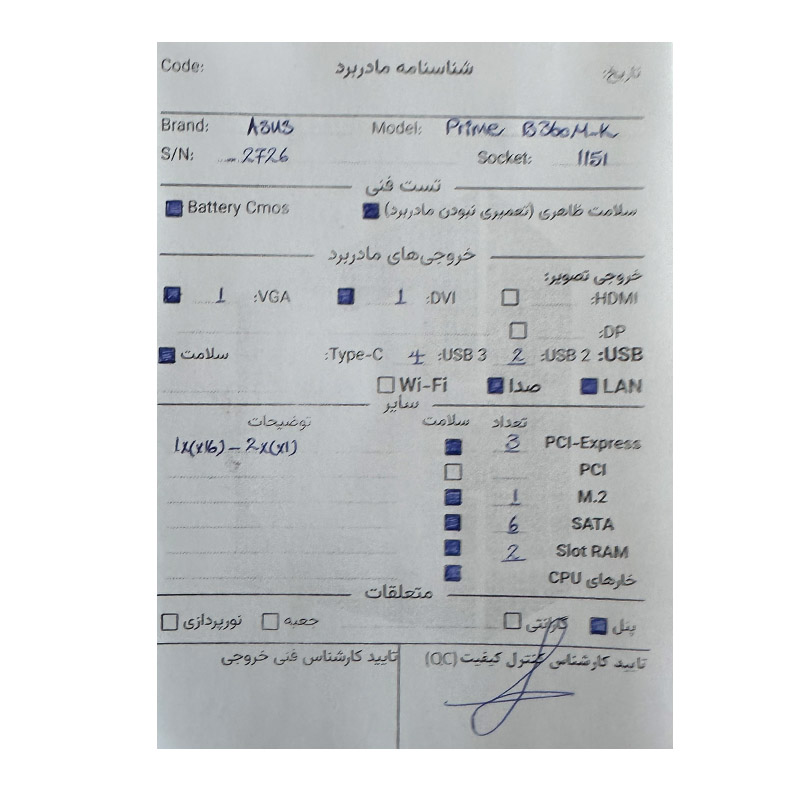 Code: شناسنامه مادربرد تاریخ:
Brand: ASUS Model: Prime B360M-K
S/N: ...2726 Socket: 1151
تست فنی
سلامت ظاهری (تعمیری نبودن مادربرد) Battery Cmos
خروجی‌های مادربرد
خروجی تصویر:
HDMI: DVI: 1 VGA: 1
DP:
USB: USB 2: 2 USB 3: 4 Type-C: سلامت
LAN صدا Wi-Fi
سایر
تعداد سلامت توضیحات
PCI-Express 3 1x(x16) - 2x(x1)
PCI
M.2 1
SATA 6
Slot RAM 2
خارهای CPU
متعلقات
پنل گارانتی جعبه نورپردازی
تایید کارشناس کنترل کیفیت (QC) تایید کارشناس فنی خروجی